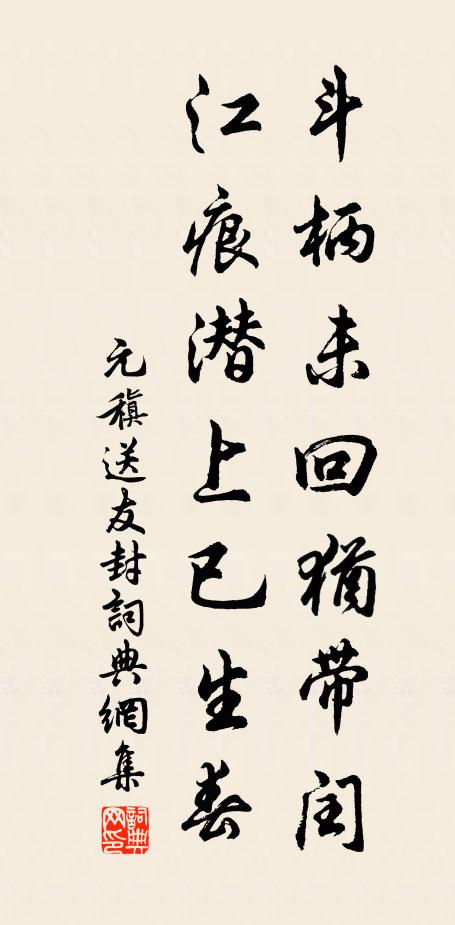 斗柄未回犹带闰
江痕潜上已生春
元稹送友封詞典網集
詞典网印